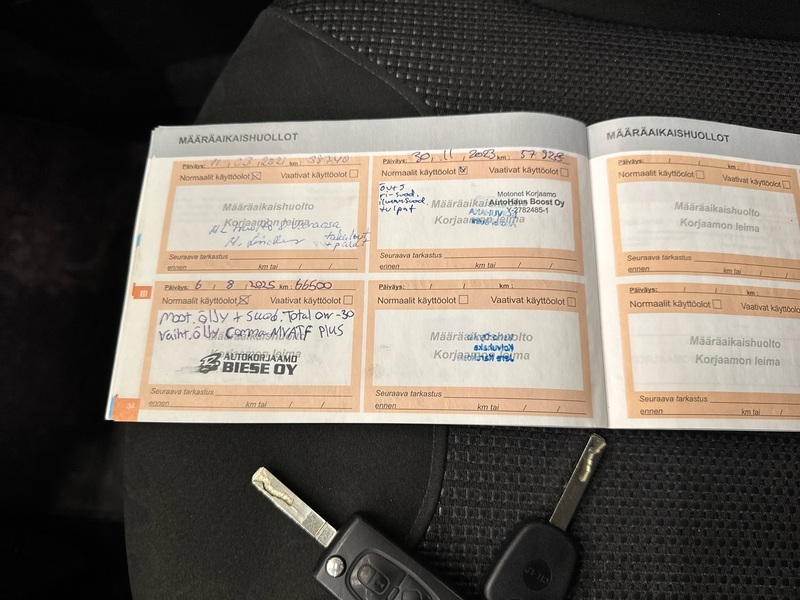 MÄÄRÄAIKAISHUOLLOT
Päiväys: 11 , 03 , 2021 km: 38740
Normaalit käyttöolot Vaativat käyttöolot
Määräaikaishuolto
Korjaamon leima
Seuraava tarkastus
ennen km tai / /
Päiväys: 30 , 11 , 2023 km: 57 928
Normaalit käyttöolot Vaativat käyttöolot
öljyt
ri-suod.
ilmansuod.
tulpat
Motonet Korjaamo
AutoHaus Boost Oy
Y-2782485-1
Määräaikaishuolto
Korjaamon leima
Seuraava tarkastus
ennen km tai / /
Päiväys: 6 , 8 , 2025 km: 66500
Normaalit käyttöolot Vaativat käyttöolot
moot.öljy + suod. Total 0w-30
vaiht.öljy Comma MVATF PLUS
AUTOKORJAAMO
BIESE OY
Seuraava tarkastus
ennen km tai / /
Päiväys: / / km:
Normaalit käyttöolot Vaativat käyttöolot
Määräaikaishuolto
Korjaamon leima
Seuraava tarkastus
ennen km tai / /
34
MÄÄRÄAIKAISHUOLLOT
Päiväys: / / km:
Normaalit käyttöolot Vaativat
Määräaikaishuolto
Korjaamon leima
Seuraava tarkastus
ennen km tai /
Päiväys: / / km:
Normaalit käyttöolot Vaativat
Määräaikaishuolto
Korjaamon leima
Seuraava tarkastus
ennen km tai /